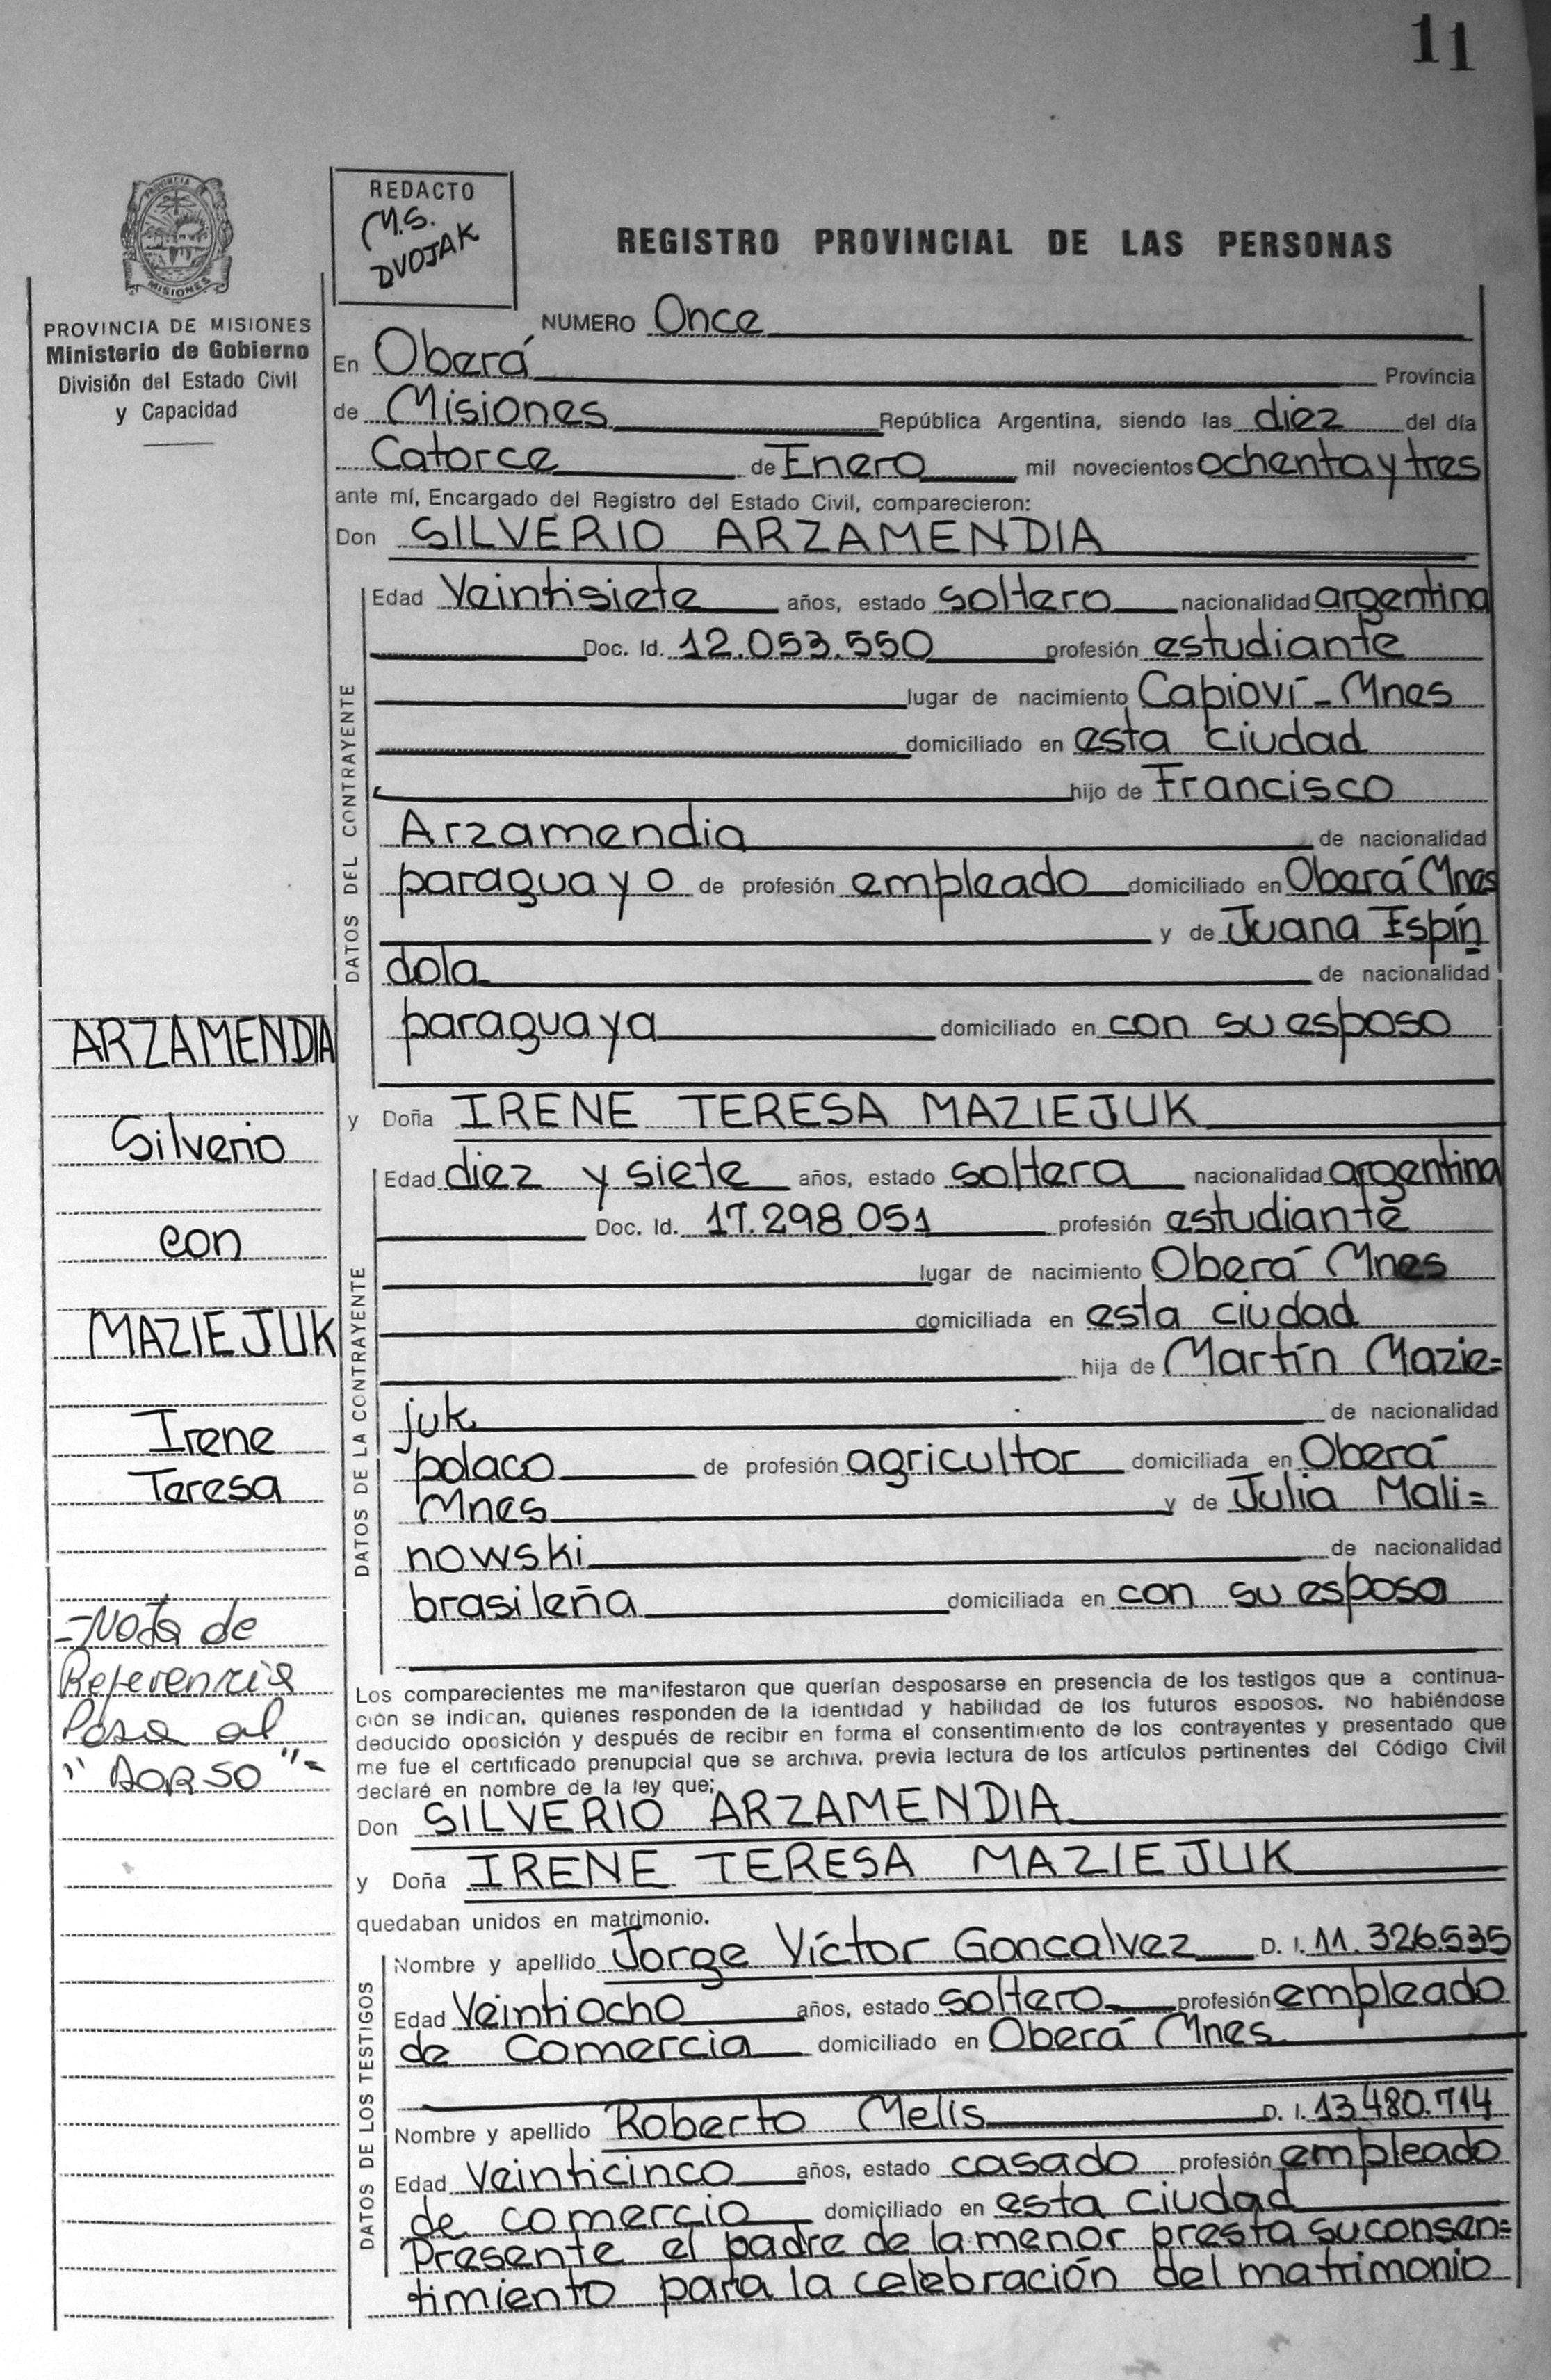 11
REDACTO
M.S.
DVOJAK
PROVINCIA DE
MISIONES
PROVINCIA DE MISIONES
Ministerio de Gobierno
División del Estado Civil
y Capacidad
REGISTRO PROVINCIAL DE LAS PERSONAS
NUMERO Once
En Oberá Provincia
de Misiones República Argentina, siendo las diez del día
Catorce de Enero mil novecientos ochenta y tres
ante mí, Encargado del Registro del Estado Civil, comparecieron:
Don SILVERIO ARZAMENDIA
DATOS DEL CONTRAYENTE
Edad Veintisiete años, estado soltero nacionalidad argentina
Doc. Id. 12.053.550 profesión estudiante
lugar de nacimiento Capioví - Mnes
domiciliado en esta ciudad
hijo de Francisco
Arzamendia de nacionalidad
paraguayo de profesión empleado domiciliado en Oberá Mnes
y de Juana Espín
dola de nacionalidad
paraguaya domiciliado en con su esposo
y Doña IRENE TERESA MAZIEJUK
DATOS DE LA CONTRAYENTE
Edad diez y siete años, estado soltera nacionalidad argentina
Doc. Id. 17.298.051 profesión estudiante
lugar de nacimiento Oberá Mnes
domiciliada en esta ciudad
hija de Martín Mazie=
juk de nacionalidad
polaco de profesión agricultor domiciliada en Oberá
Mnes y de Julia Mali=
nowski de nacionalidad
brasileña domiciliada en con su esposo
ARZAMENDIA
Silverio
con
MAZIEJUK
Irene
Teresa
- Nota de
Referencia
Pasa al
"DORSO"-
Los comparecientes me manifestaron que querían desposarse en presencia de los testigos que a continua-
ción se indican, quienes responden de la identidad y habilidad de los futuros esposos. No habiéndose
deducido oposición y después de recibir en forma el consentimiento de los contrayentes y presentado que
me fue el certificado prenupcial que se archiva, previa lectura de los artículos pertinentes del Código Civil
declaré en nombre de la ley que:
Don SILVERIO ARZAMENDIA
y Doña IRENE TERESA MAZIEJUK
quedaban unidos en matrimonio.
DATOS DE LOS TESTIGOS
Nombre y apellido Jorge Víctor Goncalvez D. I. 11.326.535
Edad Veintiocho años, estado soltero profesión empleado
de Comercia domiciliado en Oberá Mnes
Nombre y apellido Roberto Melis D. I. 13.480.714
Edad Veinticinco años, estado casado profesión empleado
de comercio domiciliado en esta ciudad
Presente el padre de la menor presta su consen=
timiento para la celebración del matrimonio